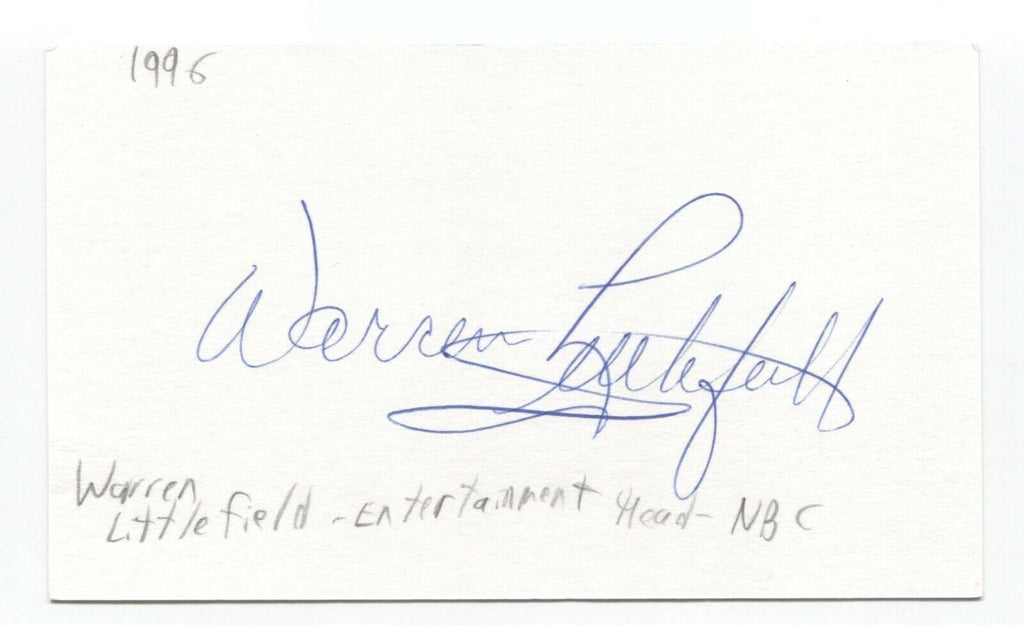 1996
Warren Littlefield
Warren
Littlefield - Entertainment Head - NBC